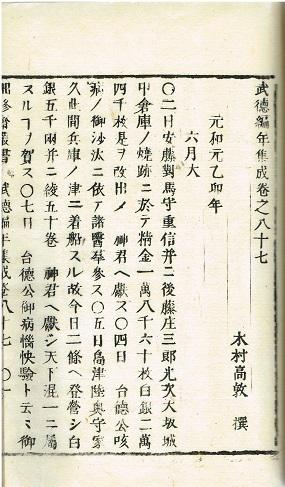 武德編年集成卷之八十七
木村高敦 撰
元和元乙卯年
六月大
〇二日安藤對馬守重信并ニ後藤庄三郎光次大坂城
中倉庫ノ燒跡ニ於テ精金一萬八千六十枚白銀二萬
四千枚是ヲ改出メ 神君ヘ獻ス〇四日 台德公咳
病ノ御沙汰ニ依テ諸醫羣參ス〇五日島津陸奥守家
久此間兵庫ノ津ニ着船スル故今日二條ヘ登營シ白
銀五千兩并ニ綾五十卷 神君ヘ獻シ天下混一ニ屬
スルヿヲ賀ス〇七日 台德公御病惱快驗ト云々御
武德編年集成卷八十七 〇一